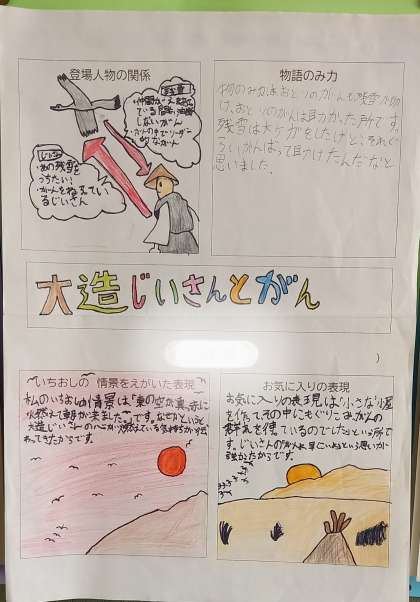 登場人物の関係
残雪
・仲間がえさを
している間も油断
しないがん
・がんの中でリーダー
的ながん
じいさん
・あの残雪を
うちたい!
・がんをねらってい
るじいさん
物語のみ力
物のみ力は、おとりのがんを残雪が助
け、おとりのがんは助かった所です。
残雪は大ケガをしたけど、それぐ
らいがんばって助けたんだなと
思いました。
大造じいさんとがん
)
いちおしの 情景をえがいた表現
私のいちおしの情景は「東の空が真っ赤に
燃えて朝が来ました。」です。なぜかというと
大造じいさんの心が燃えている気持ちが伝
わってきたからです。
お気に入りの表現
お気に入りの表現は「小さな小屋
を作って、その中にもぐりこみ、がんの
群れを待っているのでした」という所で
す。じいさんのがんよ、早くこいという思いが
強かったからです。